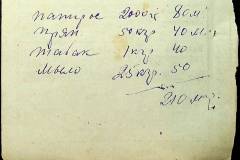 папирос 2000 80 м.
прян 50 кгр 40 м.
табак 1 кгр 40
мыло 25 кгр. 50
210 мар.